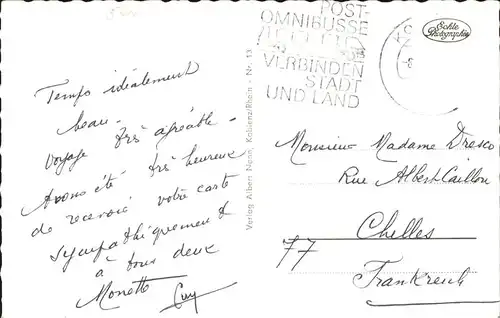 POST-
OMNIBUSSE
VERBINDEN
STADT
UND LAND
Echte
Photographie
Temps idéalement
beau.
Voyage très agréable.
Avons été très heureux
de recevoir votre carte
Sympathiquement
à tous deux
Monette Guy
Verlag Albert Nenn, Koblenz/Rhein - Nr. 13
Monsieur Madame Dresco
Rue Albert Caillou
Chelles
77
Frankreich